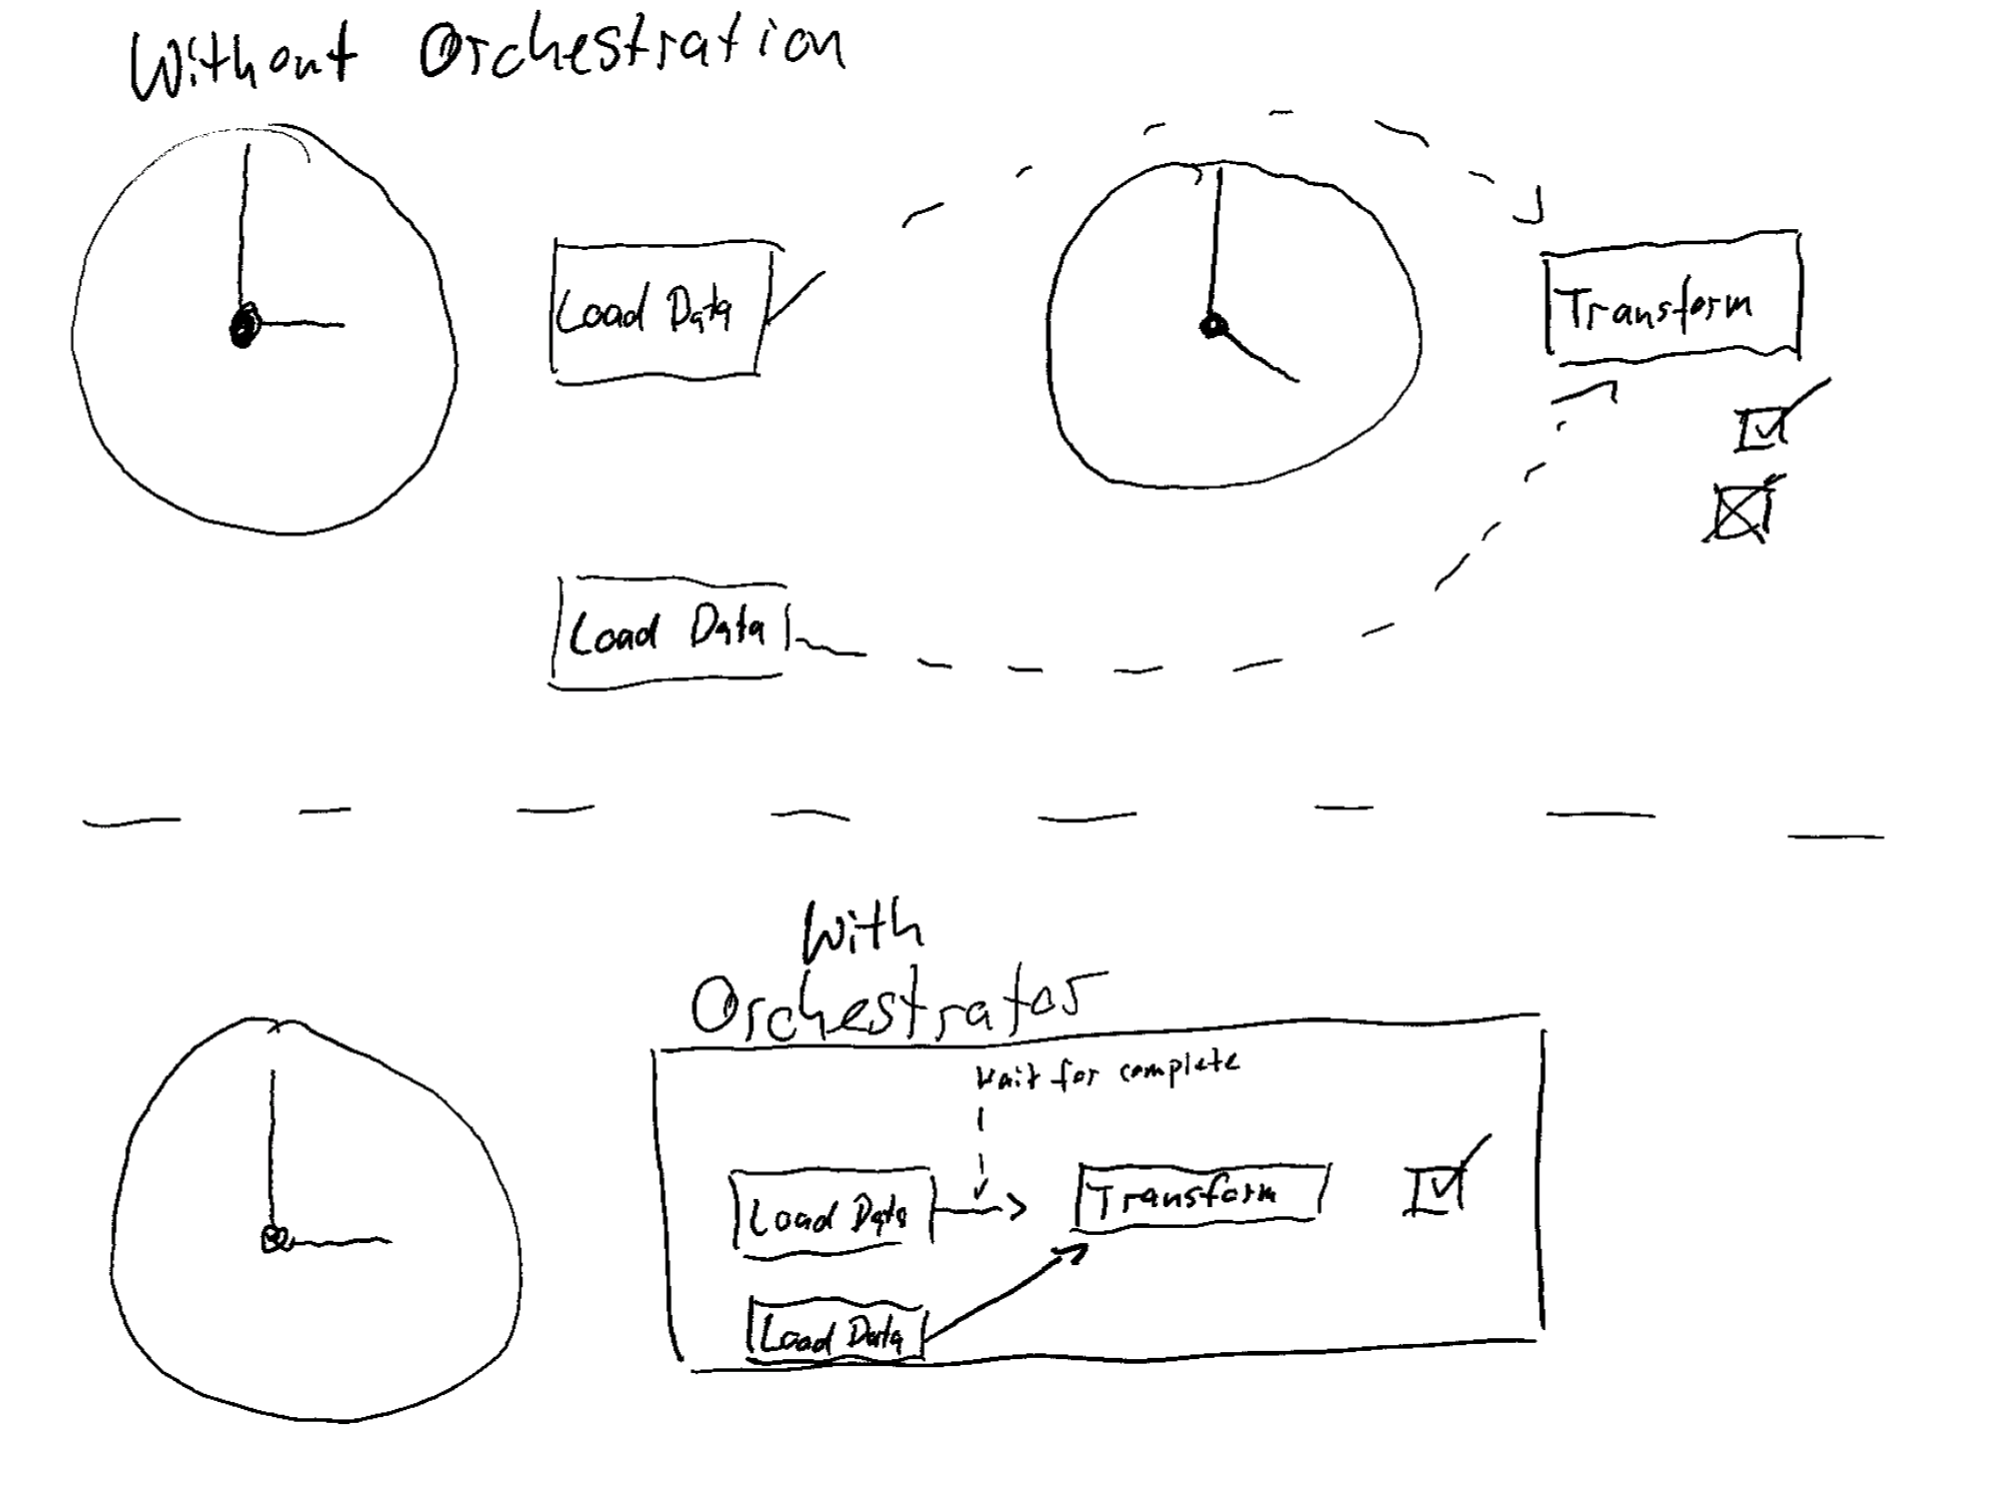 Without Orchestration
Load Data
Transform
Load Data
With
Orchestrator
wait for complete
Load Data
Transform
Load Data